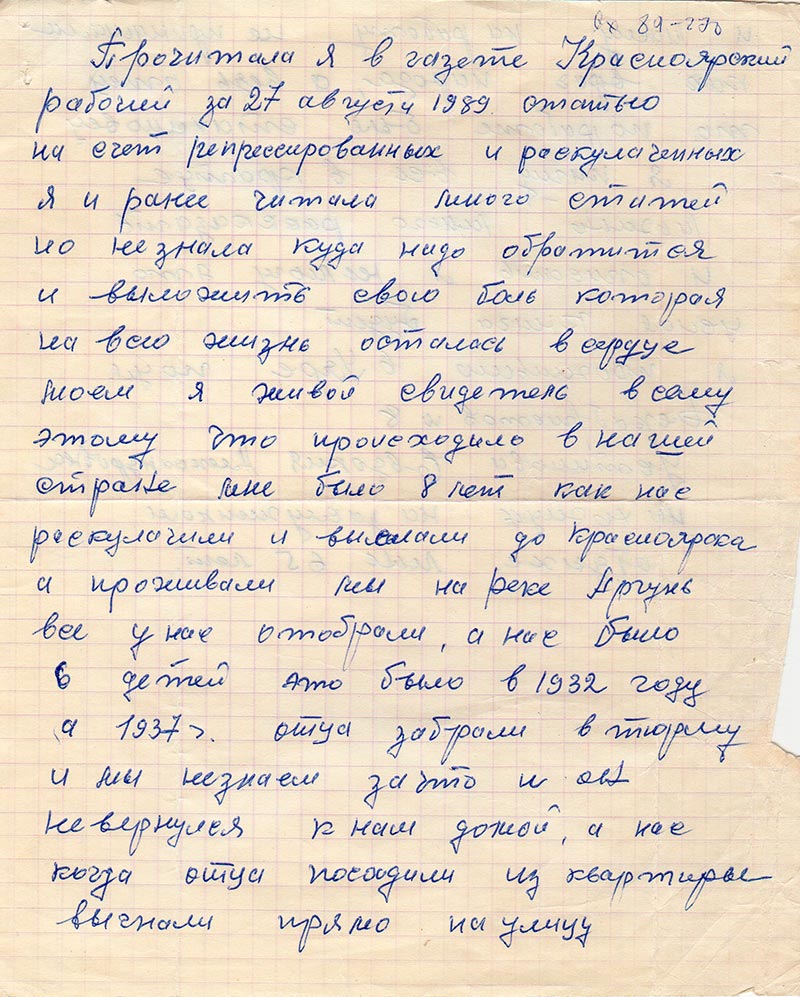 вх 89-270
Прочитала я в газете Красноярский
рабочий за 27 августу 1989 статью
на счет репрессированных и раскулаченных
я и ранее читала много статей
но незнала куда надо обратится
и выложить свою боль которая
на всю жизнь осталась в сердце
моем я живой свидетель всему
этому что происходило в нашей
стране мне было 8 лет как нас
раскулачили и выслали до Красноярска
а проживали мы на реке Аргунь
все у нас отобрали, а нас было
6 детей это было в 1932 году
а 1937 г. отца забрали в тюрму
и мы незнаем за что и он
не вернулся к нам домой, а нас
когда отца посадили из квартиры
выгнали прямо на улицу